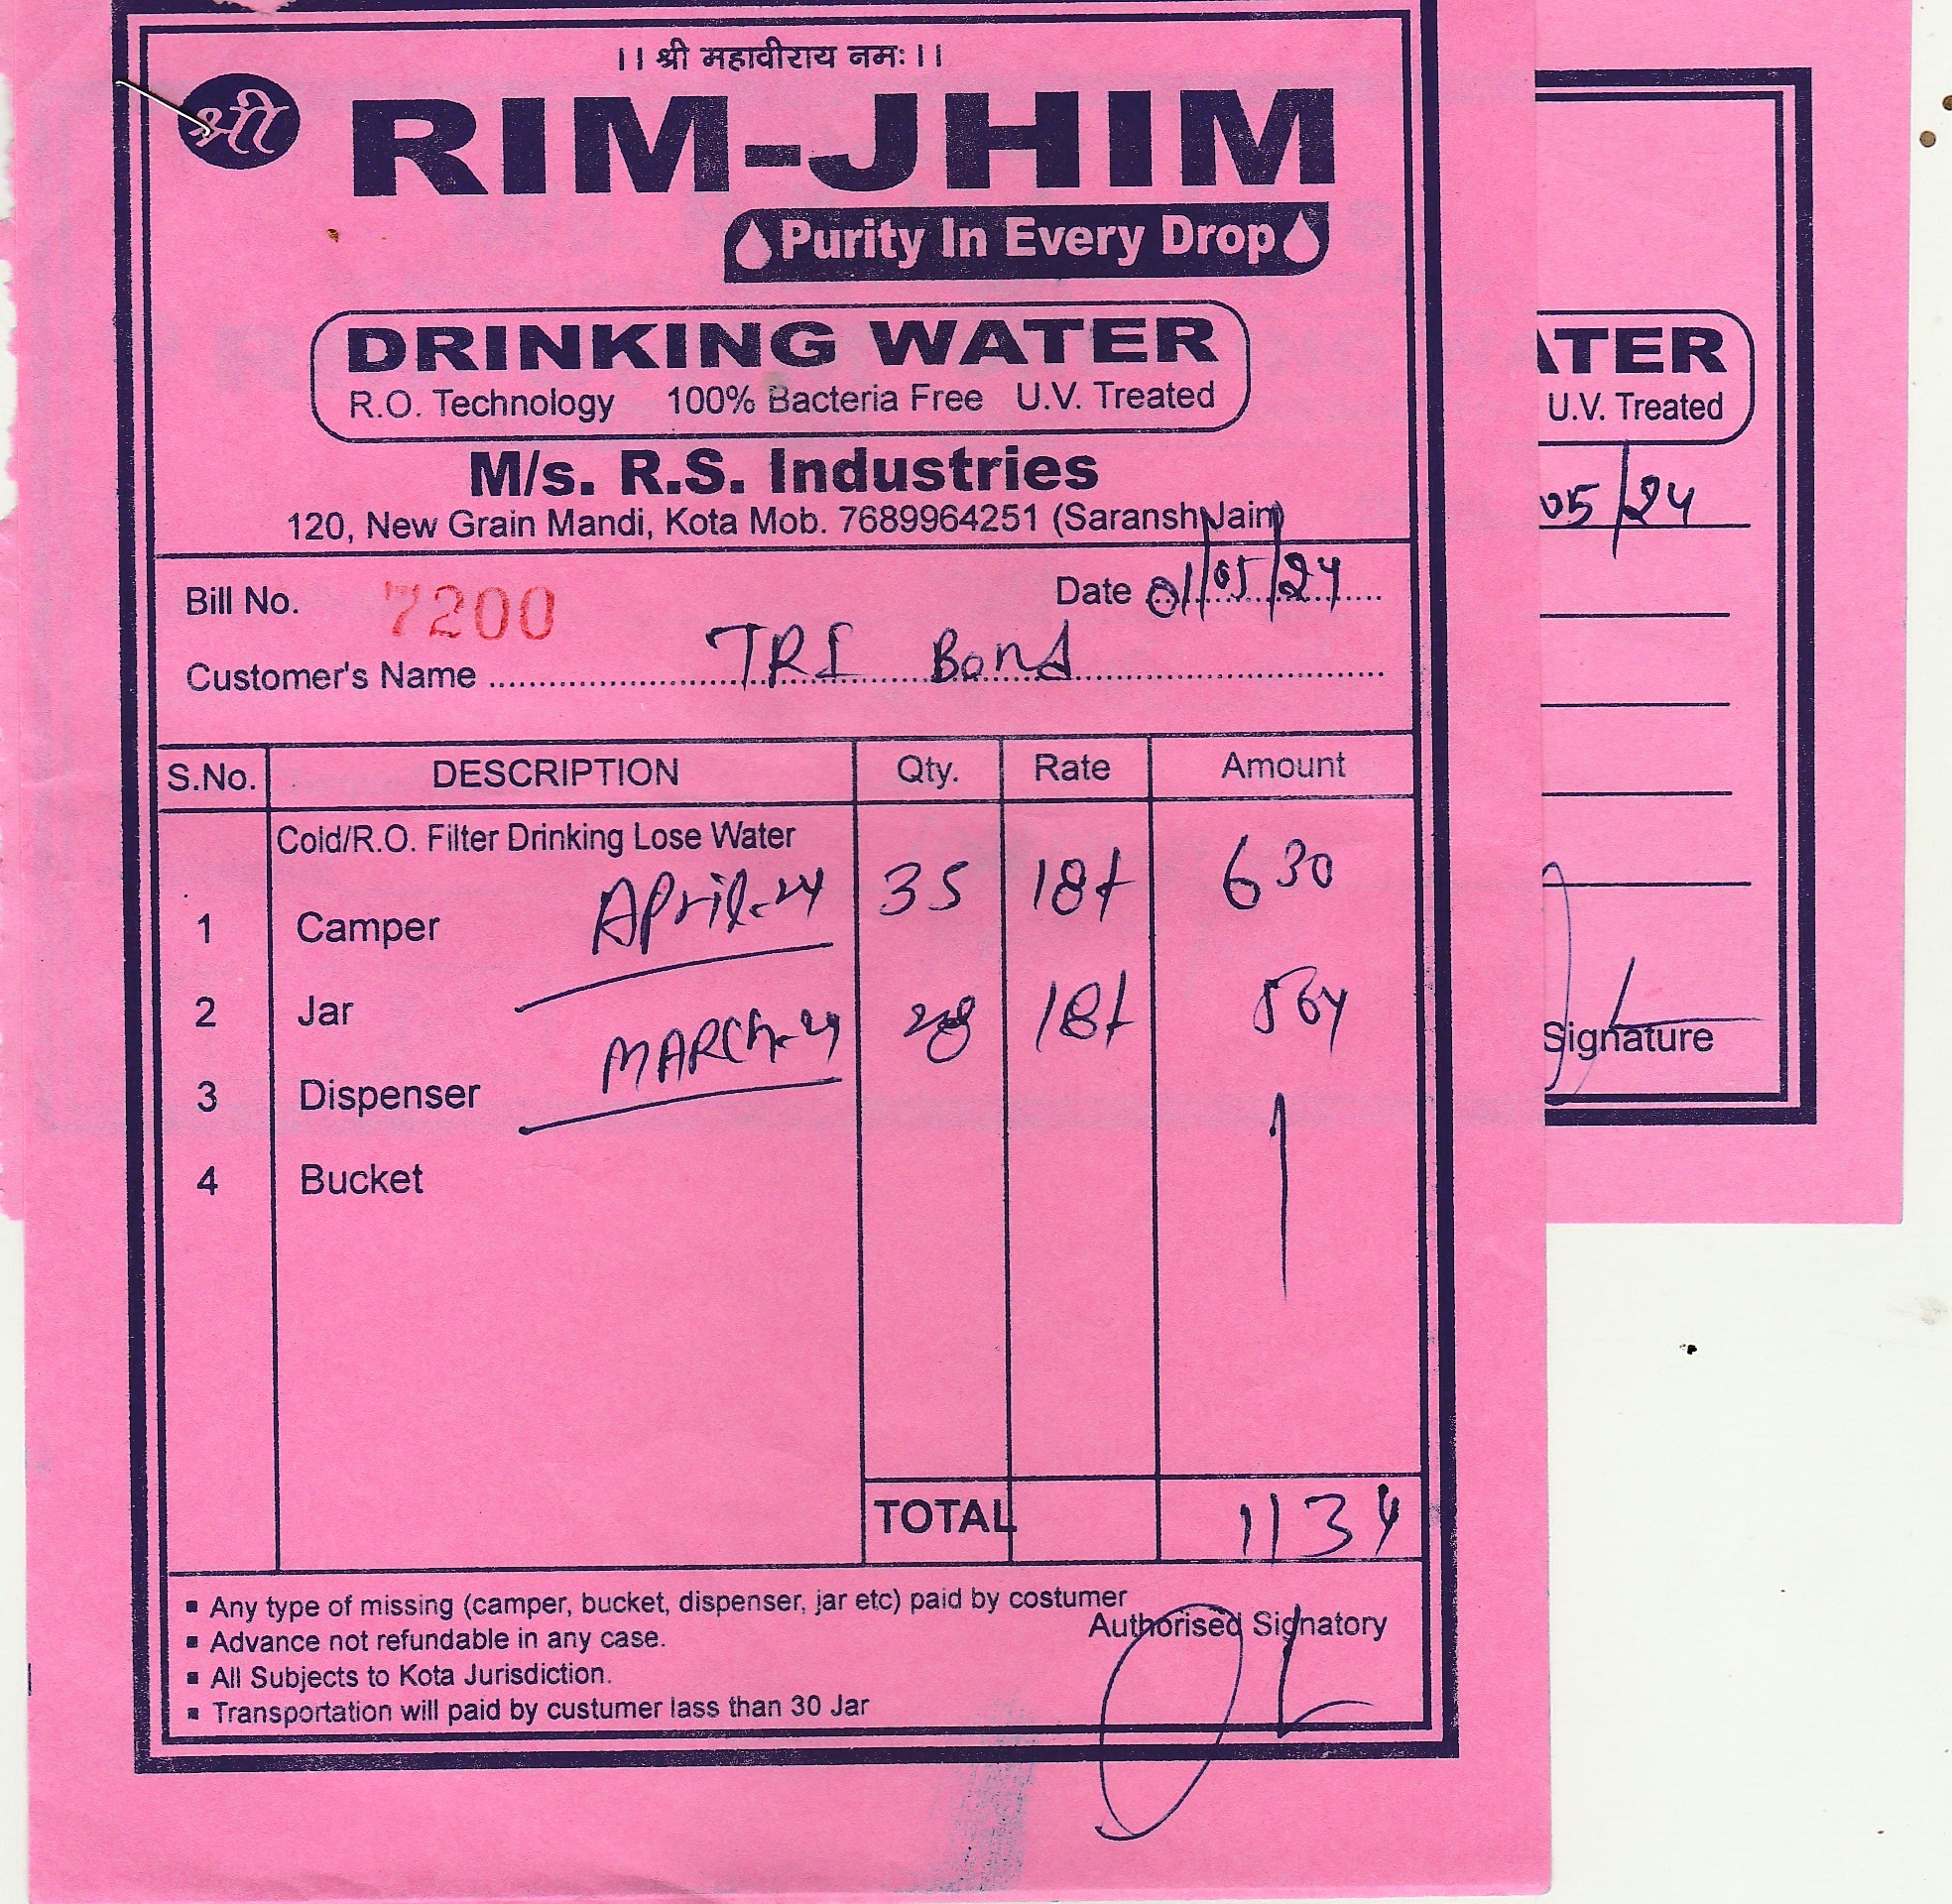 ।। श्री महावीराय नमः ।।
श्री RIM-JHIM
Purity In Every Drop
DRINKING WATER
R.O. Technology 100% Bacteria Free U.V. Treated
M/s. R.S. Industries
120, New Grain Mandi, Kota Mob. 7689964251 (Saransh Jain)
Bill No. 7200 Date 01/05/24
Customer's Name TRI Bond
S.No. DESCRIPTION Qty. Rate Amount
Cold/R.O. Filter Drinking Lose Water
1 Camper April-24 35 18/ 630
2 Jar
3 Dispenser MARCH-24 28 18/ 504
4 Bucket
TOTAL 1134
▪ Any type of missing (camper, bucket, dispenser, jar etc) paid by costumer
▪ Advance not refundable in any case.
▪ All Subjects to Kota Jurisdiction.
▪ Transportation will paid by custumer lass than 30 Jar
Authorised Signatory
ATER
U.V. Treated
05/24
Signature